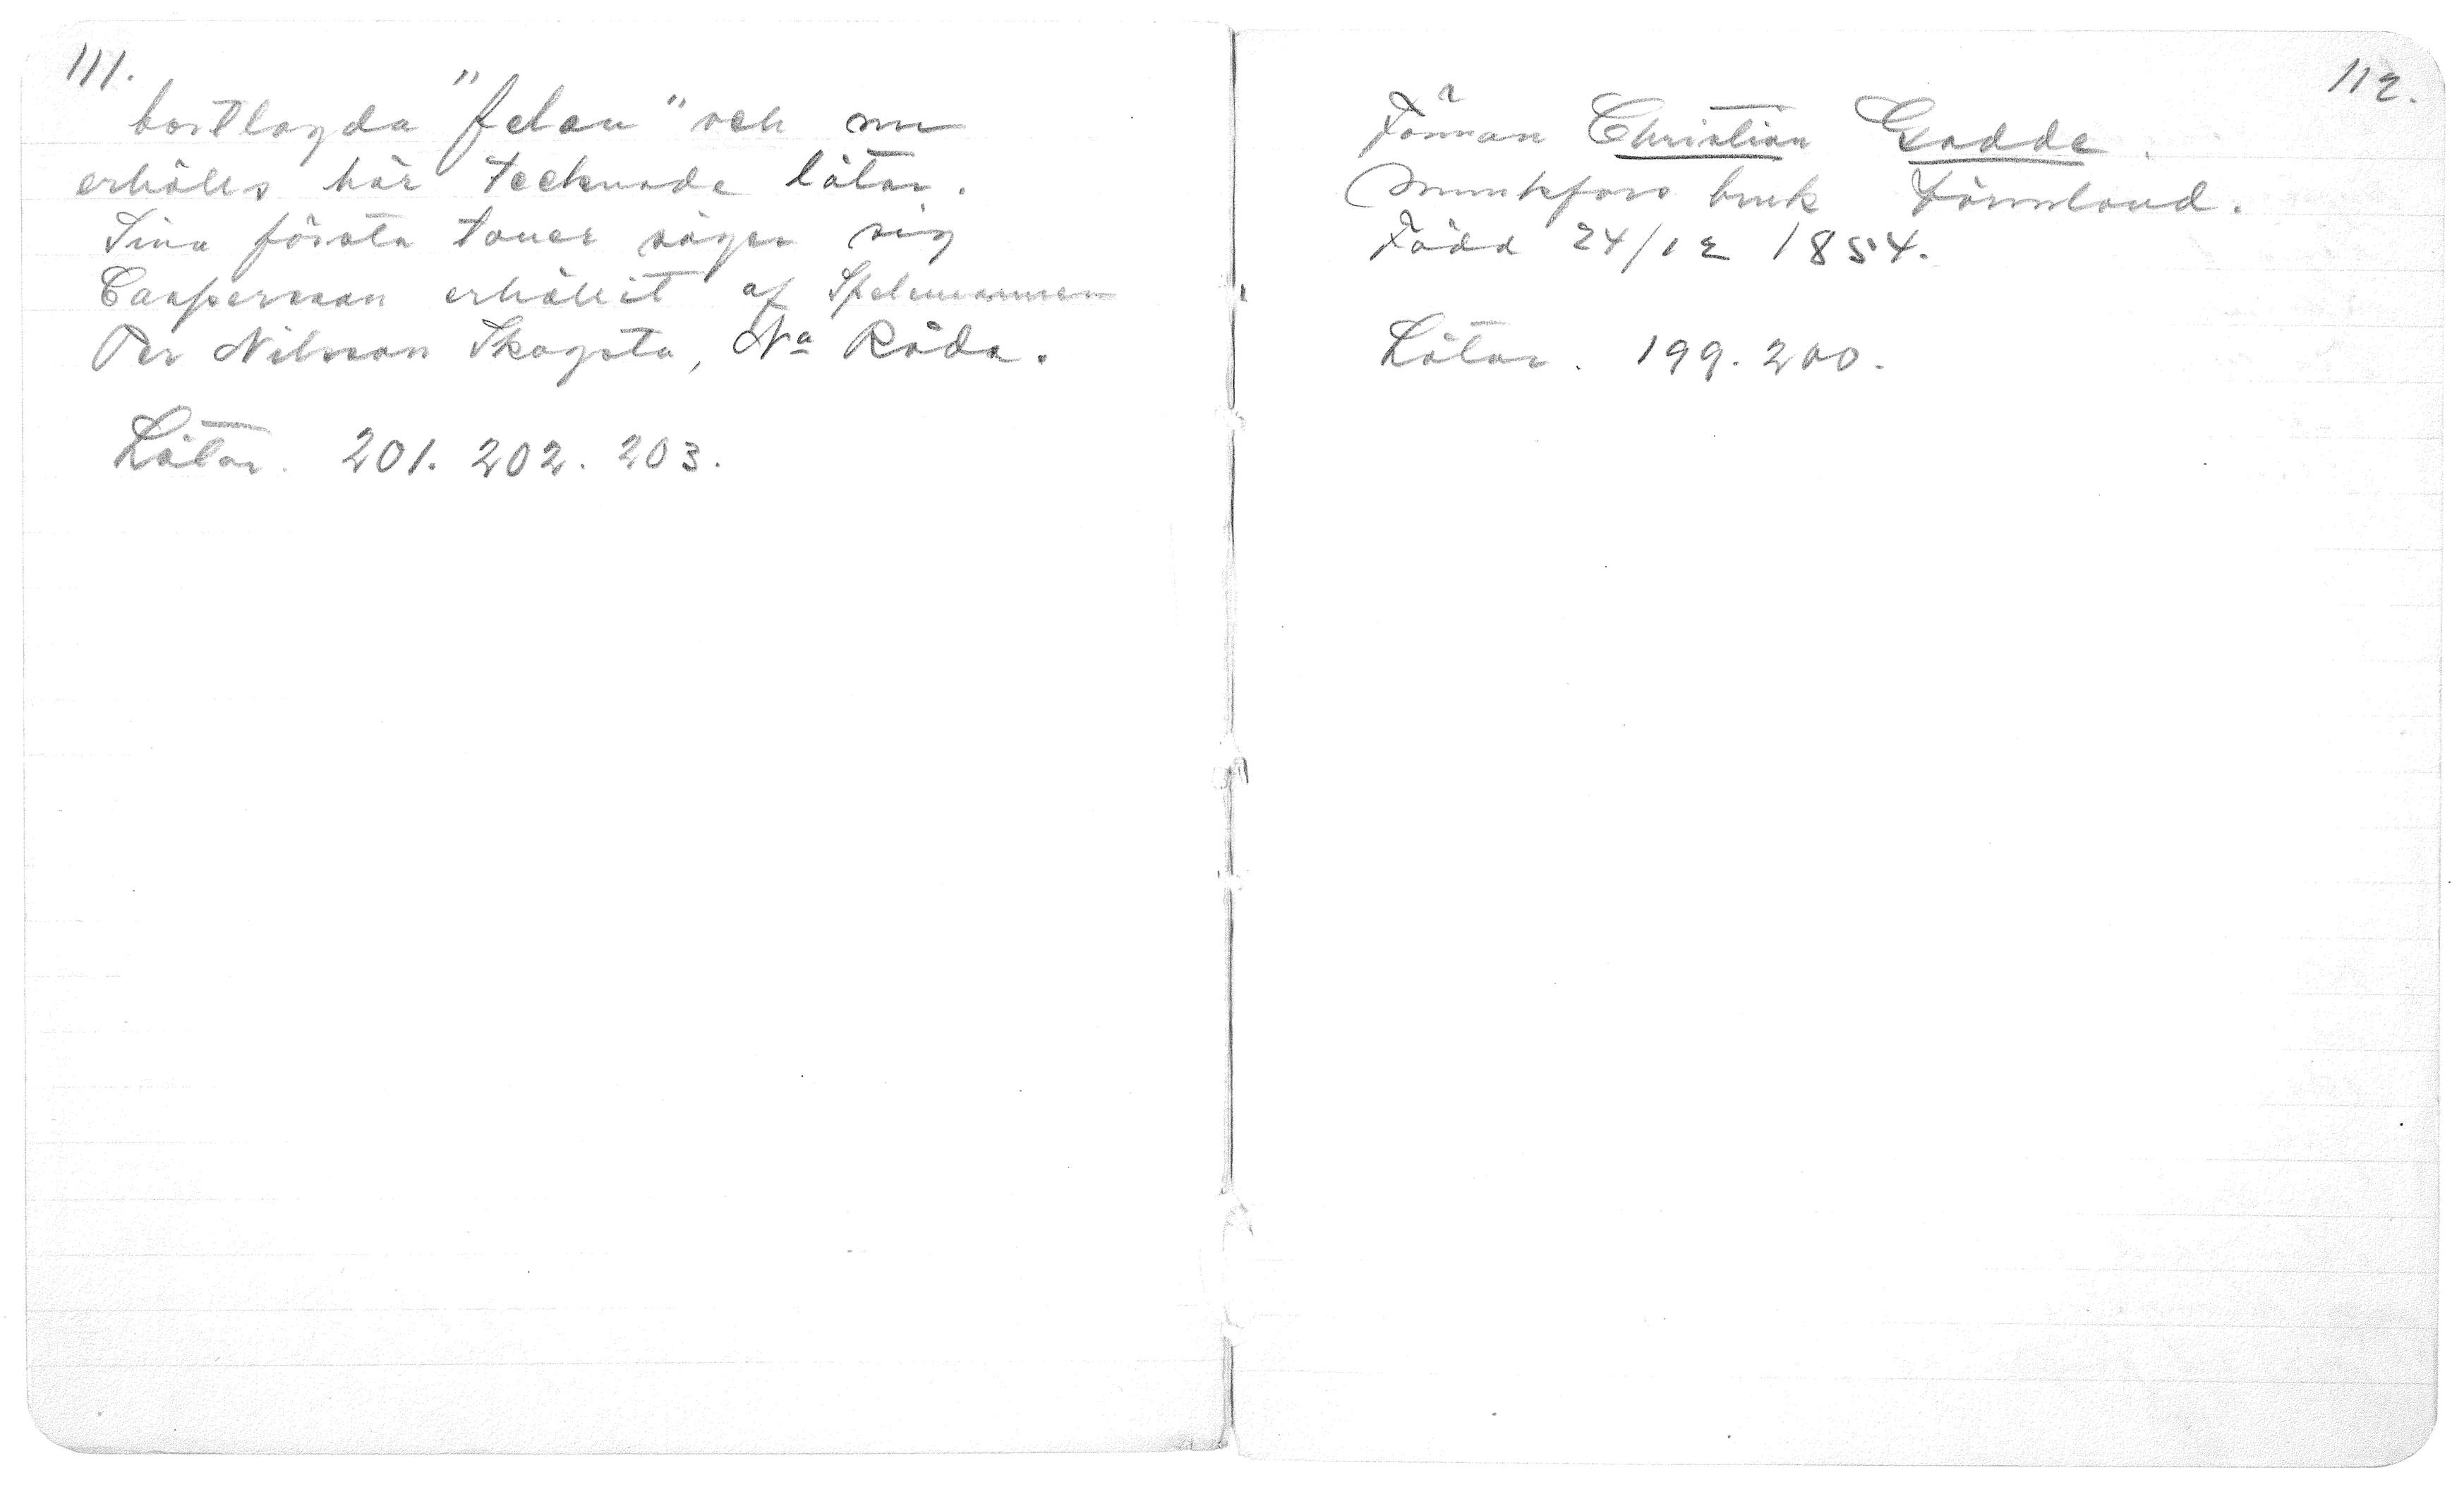 111.
bortlagda "felan" och nu
erhölls här tecknade låtar.
Sina första toner säger sig
Caspersson erhållit af Spelmannen
Per Nilsson Skogsta, Na Råda.
Låtar. 201. 202. 203.
112.
Förman Christian Gadde.
Munkfors bruk Värmland.
Född 24/12 1854.
Låtar. 199. 200.